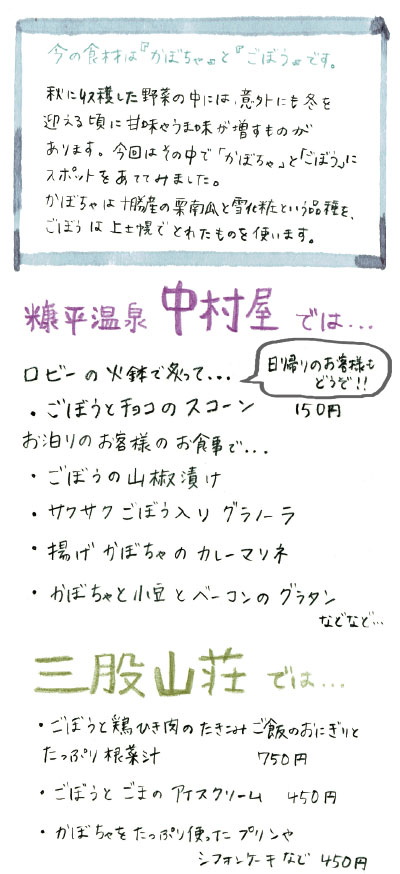 今の食材は『かぼちゃ』と『ごぼう』です。
秋に収穫した野菜の中には、意外にも冬を
迎える頃に甘味やうま味が増すものが
あります。今回はその中で「かぼちゃ」と「ごぼう」に
スポットをあててみました。
かぼちゃは十勝産の栗南瓜と雪化粧という品種を、
ごぼうは上士幌でとれたものを使います。
糠平温泉 中村屋 では...
ロビーの火鉢で炙って...
日帰りのお客様も
どうぞ!!
・ごぼうとチョコのスコーン 150円
お泊りのお客様のお食事で...
・ごぼうの山椒漬け
・サクサクごぼう入りグラノーラ
・揚げかぼちゃのカレーマリネ
・かぼちゃと小豆とベーコンのグラタン
などなど...
三股山荘 では...
・ごぼうと鶏ひき肉のたきこみご飯のおにぎりと
たっぷり根菜汁 750円
・ごぼうとごまのアイスクリーム 450円
・かぼちゃをたっぷり使ったプリンや
シフォンケーキなど 450円